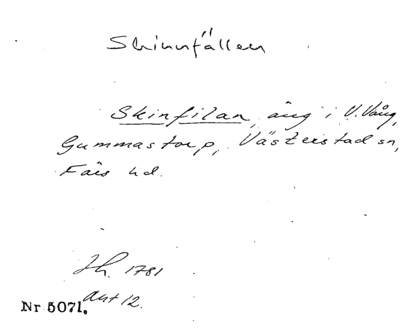 Skinnfällen
Skinfilan, äng i V. Vång,
Gummastorp, Västerstad sn,
Färs hd.
Jh. 1781
akt 12.
Nr 5071.